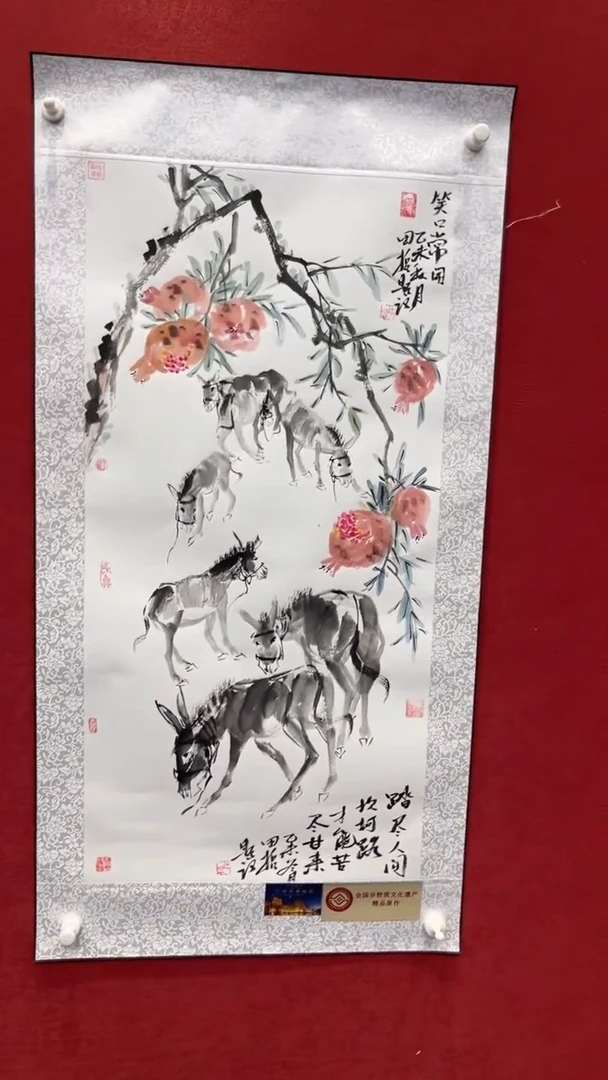 笑口常开
乙未秋月
田哲题记
踏尽人间
坎坷路
才能苦
尽甘来
田哲
题记
全国非物质文化遗产
精品画作